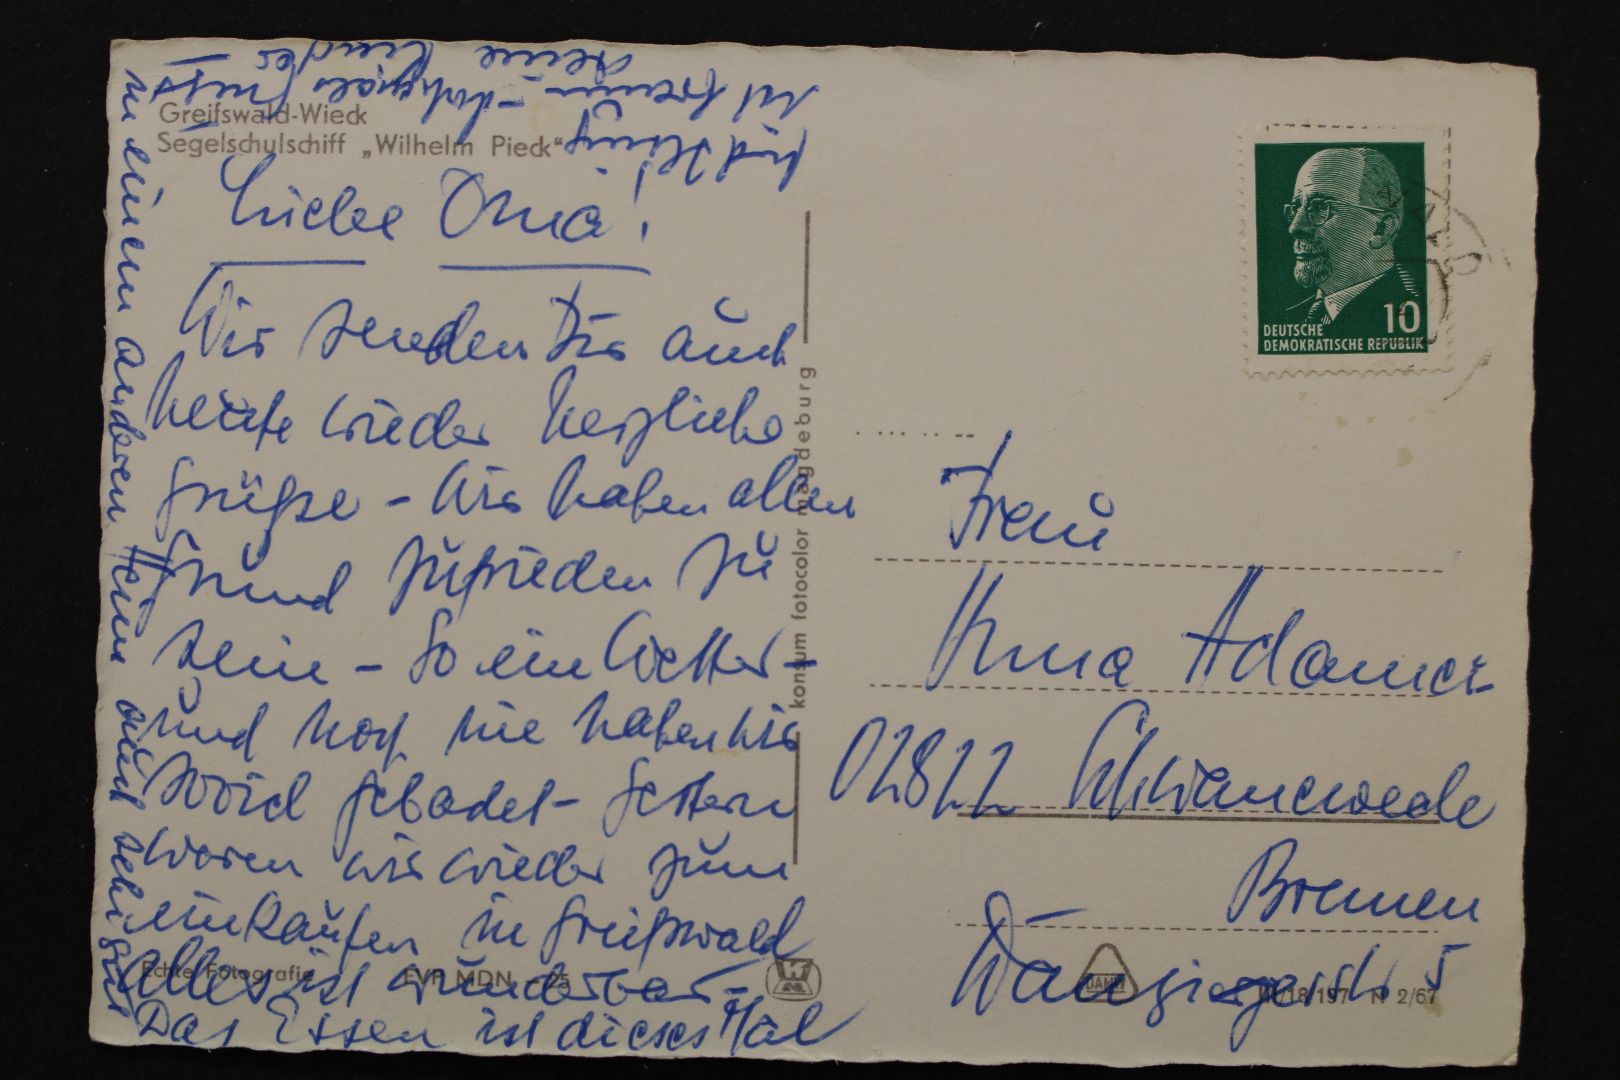 Greifswald-Wieck
Segelschulschiff „Wilhelm Pieck“
Liebe Oma!
Wir senden Dir auch
heute wieder herzliche
Grüße - Wir haben allen
Grund zufrieden zu
sein - So ein Wetter -
und noch nie haben wir
soviel gebadet - Gestern
waren wir wieder zum
einkaufen in Greifswald
alles ist wunderbar -
Das Essen ist dieses Mal
in einem anderen Heim auch sehr gut
und
Gruß
Deine Kinder
konsum fotocolor magdeburg
Echte Fotografie EVP MDN -,25
DEUTSCHE
DEMOKRATISCHE REPUBLIK
10
Frau
Anna
02822 Schwanewede
Bremen
Danzigerstr. 5
III/18/197 N 2/67